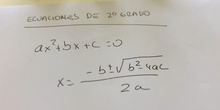 ECUACIONES DE 2º GRADO
ax²+bx+c=0
x= -b±√b²-4ac / 2a